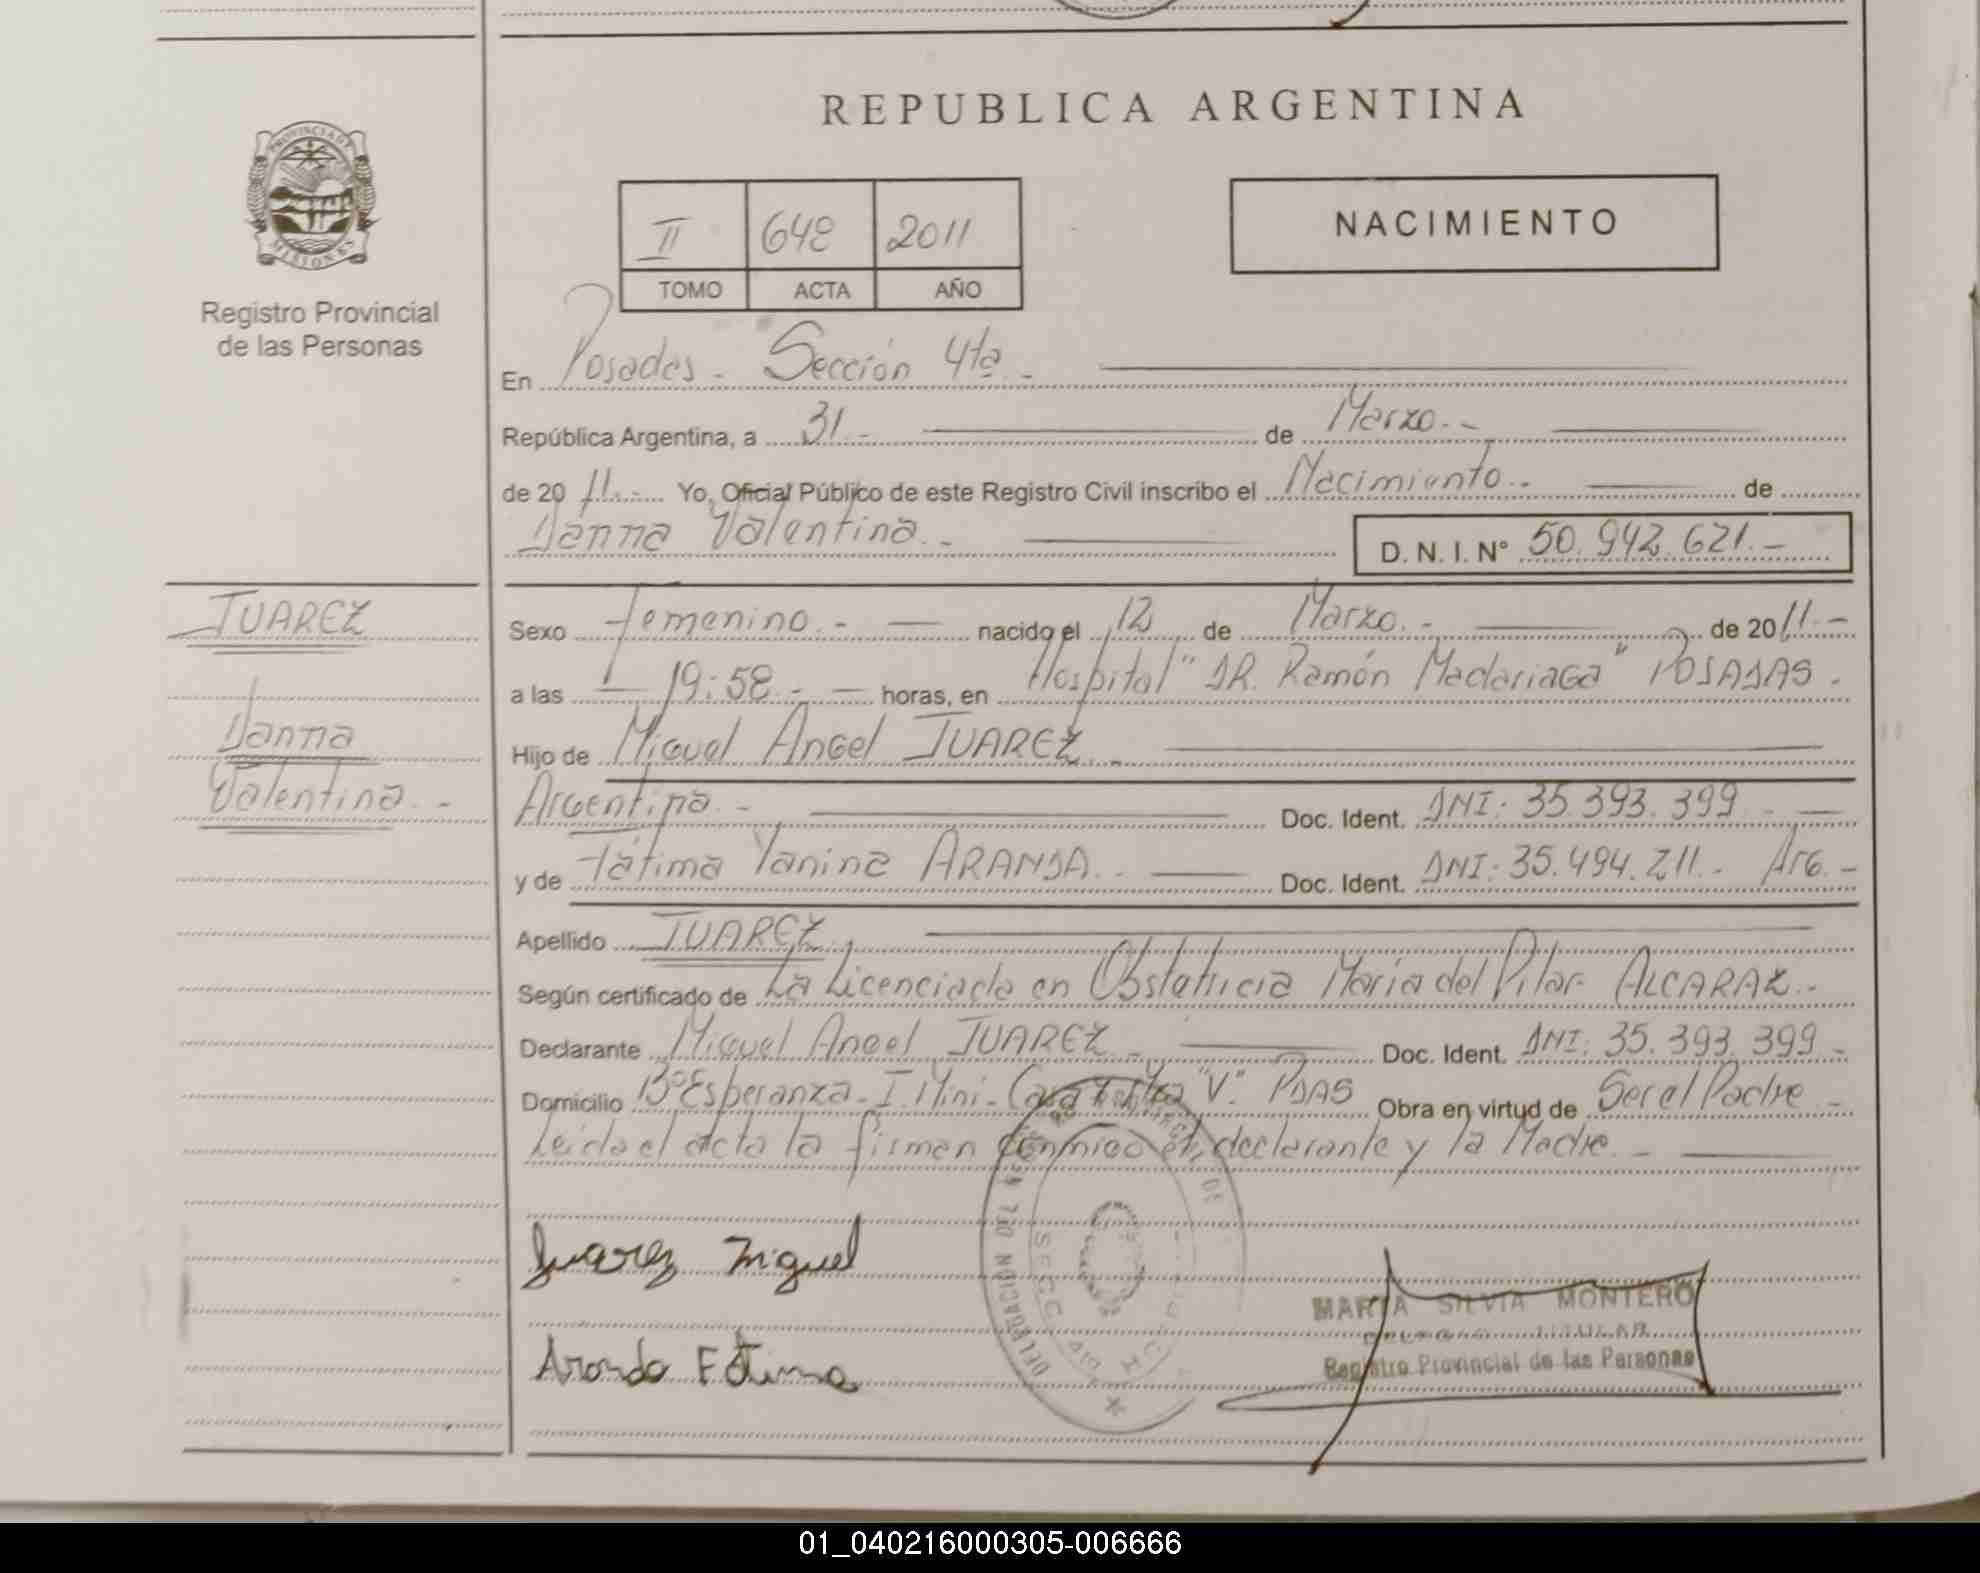 REPUBLICA ARGENTINA
PROVINCIA DE
MISIONES
Registro Provincial
de las Personas
II 648 2011
TOMO ACTA AÑO
NACIMIENTO
En Posadas - Sección 4ta -
República Argentina, a 31 - de Marzo. -
de 20 11. - Yo, Oficial Público de este Registro Civil inscribo el Nacimiento. - de
Danna Valentina. - D. N. I. N° 50.942.621. -
JUAREZ
Danna
Valentina. -
Sexo Femenino. - nacido el 12 de Marzo. - de 20 11. -
a las 19:58. - horas, en Hospital "DR. Ramón Madariaga" POSADAS.
Hijo de Miguel Angel JUAREZ. -
Argentina. - Doc. Ident. DNI: 35.393.399 -
y de Fátima Yanina ARANDA. - Doc. Ident. DNI: 35.494.211. - Arg. -
Apellido JUAREZ
Según certificado de La Licenciada en Obstetricia María del Pilar ALCARAZ. -
Declarante Miguel Angel JUAREZ - Doc. Ident. DNI: 35.393.399 -
Domicilio B° Esperanza - I. Mini - Casa "V". PDAS Obra en virtud de Ser el Padre -
Leida el acta la firman conmigo el declarante y la Madre. -
Juarez Miguel
Aranda Fátima
MARTA SILVIA MONTERO
TITULAR
Registro Provincial de las Personas
01_040216000305-006666